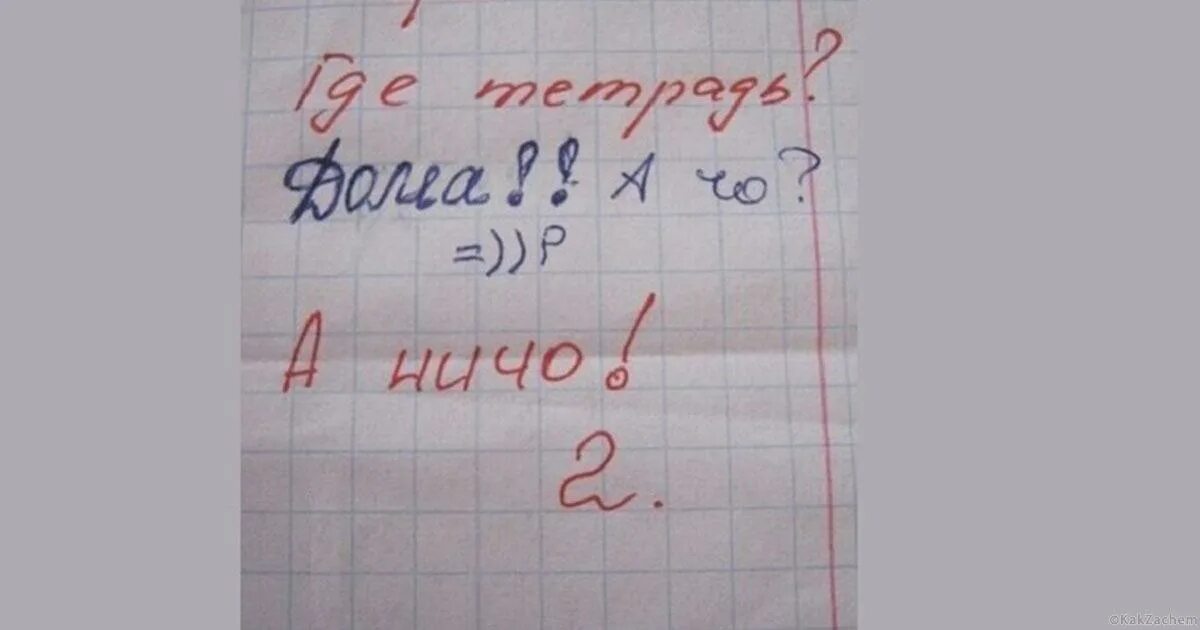 Где тетрадь?
Дома!! А чо?
=))P
А ничо!
2.
©KakZachem